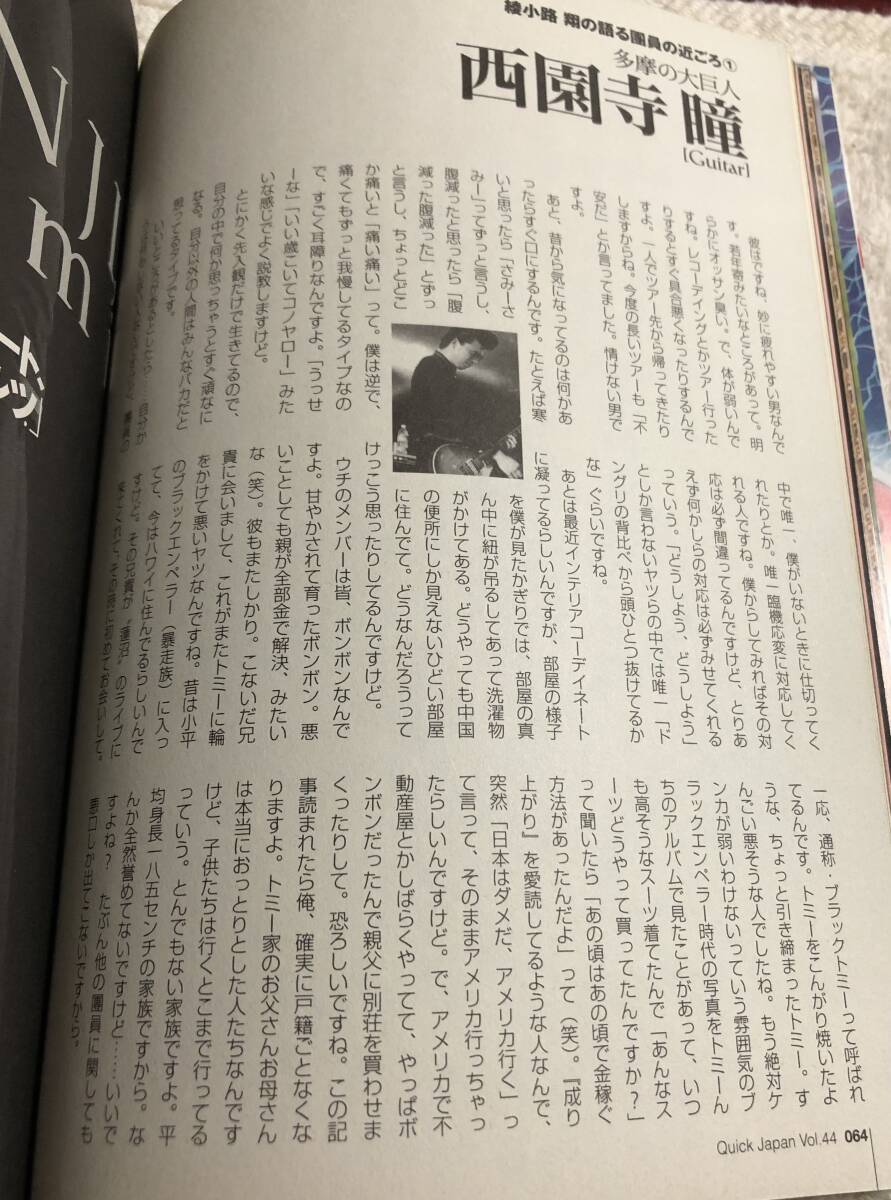 綾小路 翔の語る團員の近ごろ①
多摩の大巨人
西園寺 瞳
[Guitar]
彼はですね、妙に疲れやすい男なんで
す。若年寄みたいなところがあって。明
らかにオッサン臭い。で、体が弱いんで
すね。レコーディングとかツアー行った
りするとすぐ具合悪くなったりするんで
すよ。一人でツアー先から帰ってきたり
しますからね。今度の長いツアーも「不
安だ」とか言ってました。情けない男で
すよ。
あと、昔から気になってるのは何かあ
ったらすぐ口にするんです。たとえば寒
いと思ったら「さみーさ
みー」ってずっと言うし、
腹減ったと思ったら「腹
減った腹減った」とずっ
と言うし、ちょっとどこ
か痛いと「痛い痛い」って。僕は逆で、
痛くてもずっと我慢してるタイプなの
で、すごく耳障りなんですよ。「うっせ
ーな」「いい歳こいてコノヤロー」みた
いな感じでよく説教しますけど。
とにかく先入観だけで生きてるので、
自分の中で何か思っちゃうとすぐ頑なに
なる。自分以外の人間はみんなバカだと
思ってるタイプです。
中で唯一、僕がいないときに仕切ってく
れたりとか。唯一臨機応変に対応してく
れる人ですね。僕からしてみればその対
応は必ず間違ってるんですけど、とりあ
えず何かしらの対応は必ずみせてくれる
っていう。「どうしよう、どうしよう」
としか言わないヤツらの中では唯一「ド
ングリの背比べから頭ひとつ抜けてるか
な」ぐらいですね。
あとは最近インテリアコーディネート
に凝ってるらしいんですが、部屋の様子
を僕が見たかぎりでは、部屋の真
ん中に紐が吊るしてあって洗濯物
がかけてある。どうやっても中国
の便所にしか見えないひどい部屋
に住んでて。どうなんだろうって
けっこう思ったりしてるんですけど。
ウチのメンバーは皆、ボンボンなんで
すよ。甘やかされて育ったボンボン。悪
いことしても親が全部金で解決、みたい
な（笑）。彼もまたしかり。こないだ兄
貴に会いまして、これがまたトミーに輪
をかけて悪いヤツなんですね。昔は小平
のブラックエンペラー（暴走族）に入っ
てて、今はハワイに住んでるらしいんで
すけど。その兄貴が“蓮沼”のライブに
来てくれて、その時に初めてお会いして。
一応、通称・ブラックトミーって呼ばれ
てるんです。トミーをこんがり焼いたよ
うな、ちょっと引き締まったトミー。す
んごい悪そうな人でしたね。もう絶対ケ
ンカが弱いわけないっていう雰囲気のブ
ラックエンペラー時代の写真をトミーん
ちのアルバムで見たことがあって、いつ
も高そうなスーツ着てたんで「あんなス
ーツどうやって買ってたんですか？」
って聞いたら「あの頃はあの頃で金稼ぐ
方法があったんだよ」って（笑）。『成り
上がり』を愛読してるような人なんで、
突然「日本はダメだ、アメリカ行く」っ
て言って、そのままアメリカ行っちゃっ
たらしいんですけど。で、アメリカで不
動産屋とかしばらくやってて、やっぱボ
ンボンだったんで親父に別荘を買わせま
くったりして。恐ろしいですね。この記
事読まれたら俺、確実に戸籍ごとなくな
りますよ。トミー家のお父さんお母さん
は本当におっとりとした人たちなんです
けど、子供たちは行くとこまで行ってる
っていう。とんでもない家族ですよ。平
均身長一八五センチの家族ですから。な
んか全然誉めてないですけど……いいで
すよね？　たぶん他の團員に関しても
悪口しか出てこないですから。
Quick Japan Vol.44 064